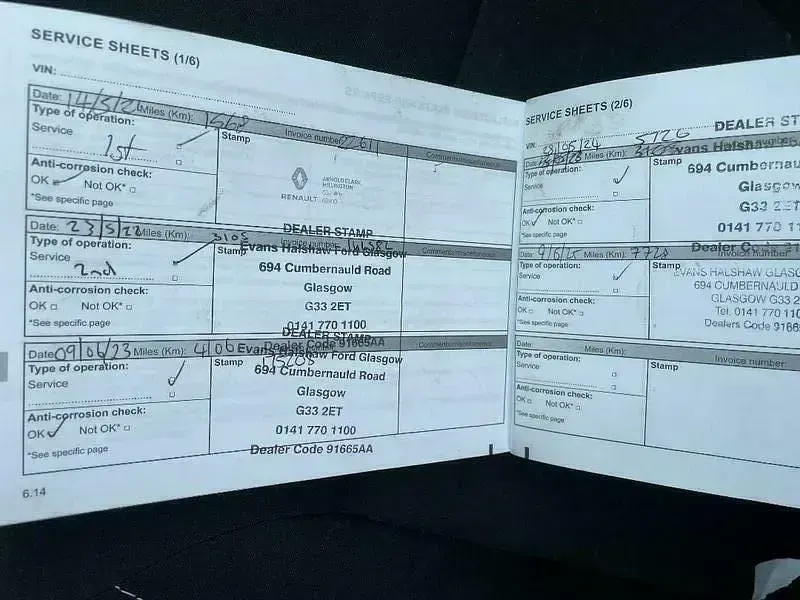 SERVICE SHEETS (1/6)
VIN:
Date: 14/5/21 Miles (Km): 1568 Invoice number Comments/miscellaneous
Type of operation:
Service
1st
Stamp
RENAULT
ARNOLD CLARK
Anti-corrosion check:
OK Not OK*
*See specific page
Date: 23/5/22 Miles (Km): 3105 Invoice number Comments/miscellaneous
Type of operation:
Service
2nd
Stamp
DEALER STAMP
Evans Halshaw Ford Glasgow
694 Cumbernauld Road
Glasgow
G33 2ET
0141 770 1100
Dealer Code 91665AA
Anti-corrosion check:
OK Not OK*
*See specific page
Date 09/06/23 Miles (Km): 4106 Comments/miscellaneous
Type of operation:
Service
Stamp
DEALER STAMP
Evans Halshaw Ford Glasgow
694 Cumbernauld Road
Glasgow
G33 2ET
0141 770 1100
Dealer Code 91665AA
Anti-corrosion check:
OK Not OK*
*See specific page
6.14
SERVICE SHEETS (2/6)
VIN:
08/05/24 5726
Date: Miles (Km):
Type of operation:
Service
Stamp
DEALER ST
Evans Halshaw
694 Cumbernau
Glasgow
G33 2ET
0141 770
Dealer Code 91
Anti-corrosion check:
OK Not OK*
*See specific page
Date: 9/6/25 Miles (Km): 7728 Invoice number
Type of operation:
Service
Stamp
EVANS HALSHAW GLASG
694 CUMBERNAULD
GLASGOW G33 2
Tel. 0141 77
Dealers Code 916
Anti-corrosion check:
OK Not OK*
*See specific page
Date: Miles (Km): Invoice number:
Type of operation:
Service
Stamp
Anti-corrosion check:
OK Not OK*
*See specific page